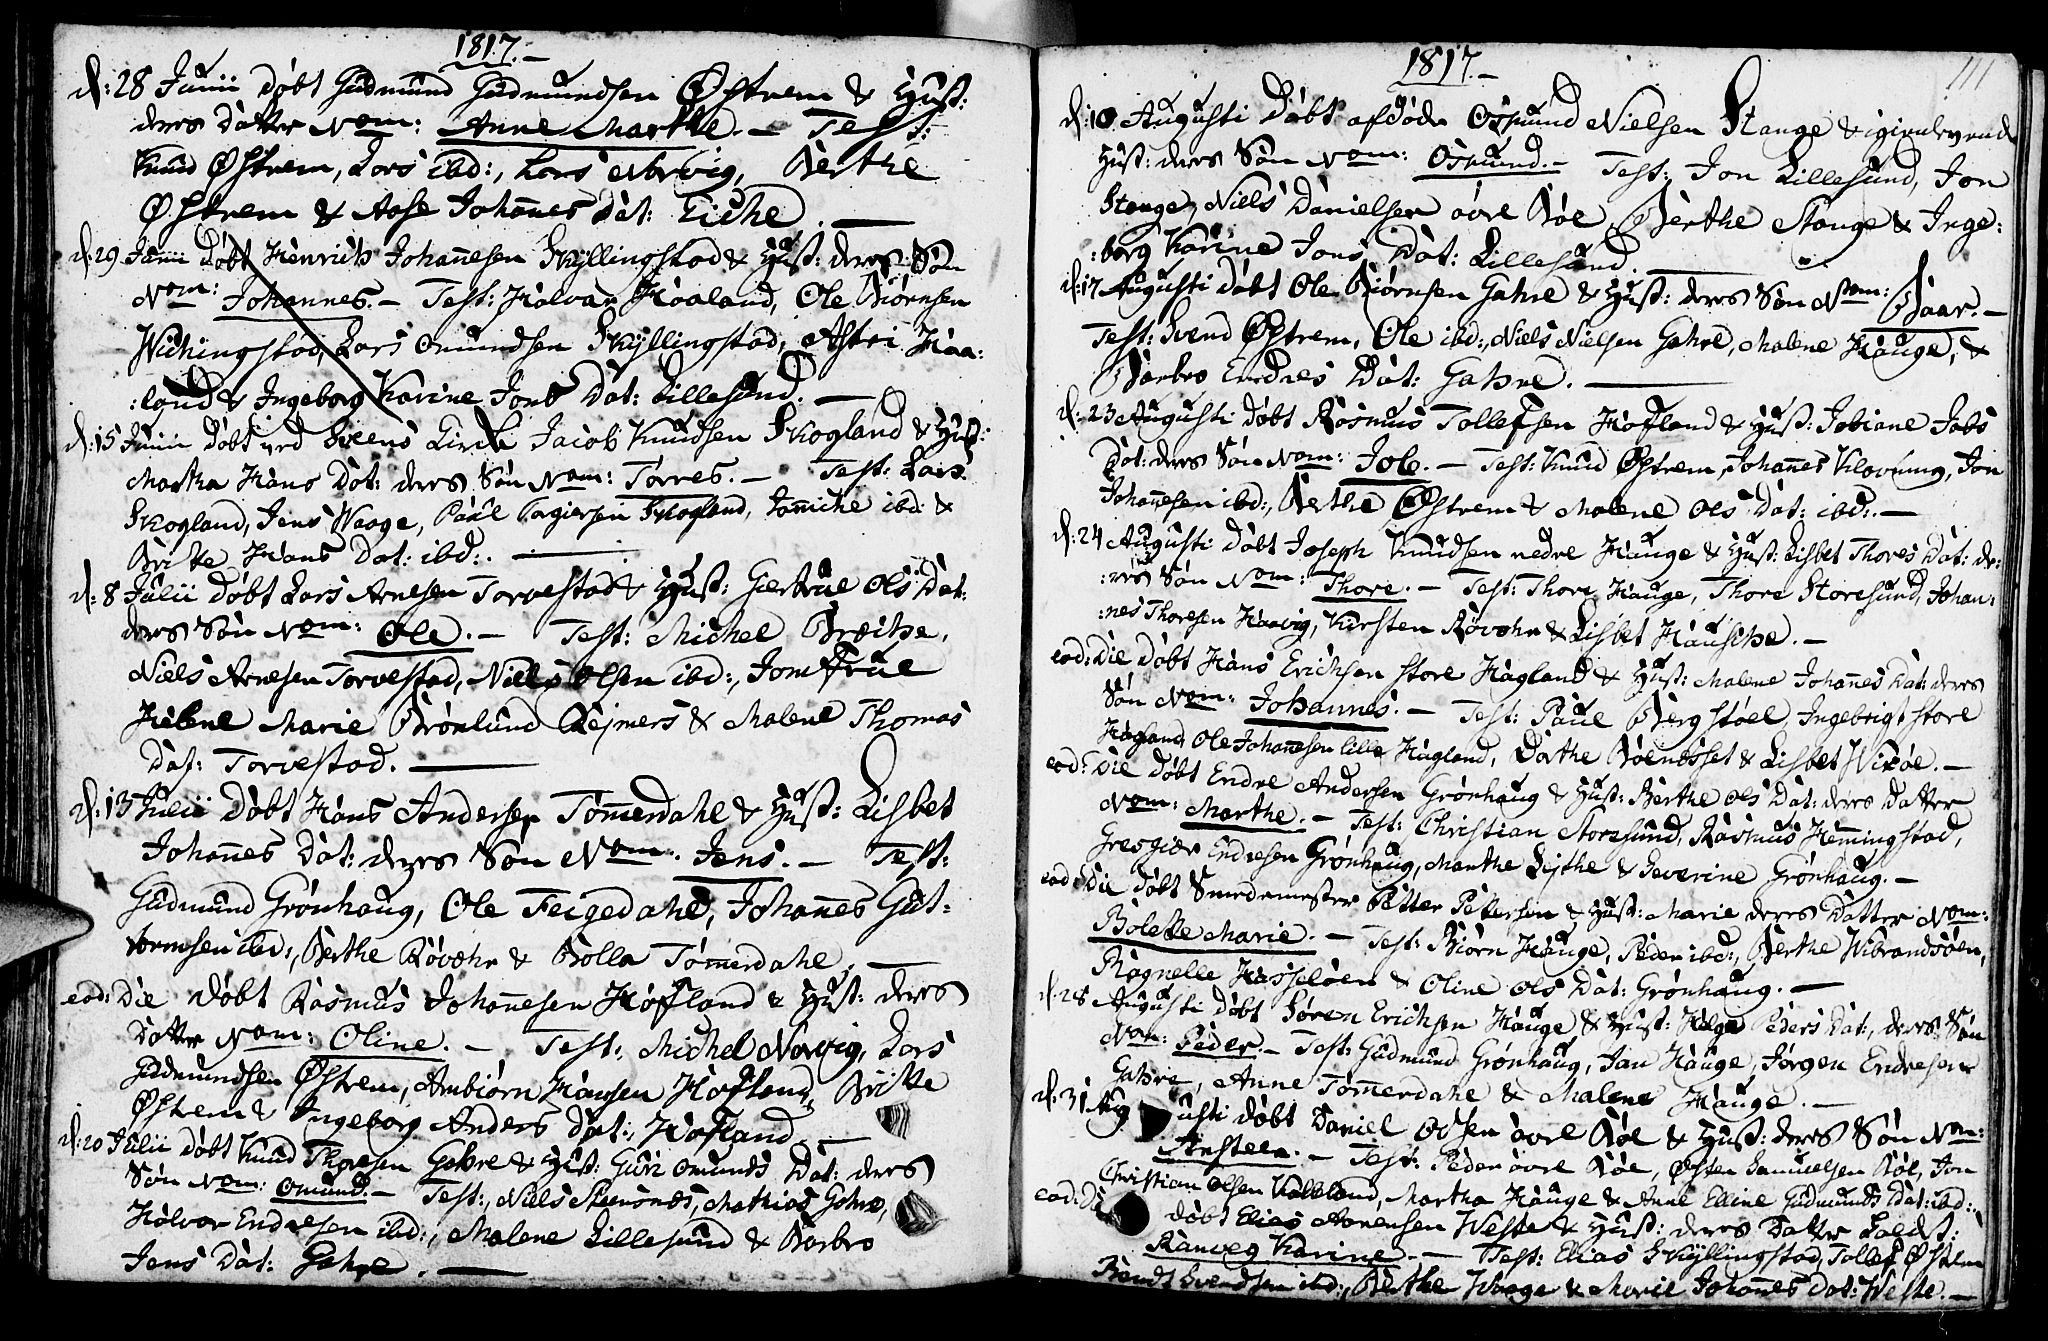 1817.-
d: 28 Junii døbt Gudmund Gudmundsen Østrem & Hust:
deres Datter Nom: Anne Marthe. - Test:
Knud Østrem, Lars ibd:, Lars Norvig, Berthe
Østrem & Aase Johañes Dat: Eiche. —
d: 29 Junii døbt Henrich Johañesen Skyllingstad & Hust: deres Søn
Nom: Johannes. - Test: Halvar Haaland, Ole Biørnsen
Wichingstad, Lars Omundsen Skyllingstad, Astri Haa:
:land & Ingeborg Karine Jons Dat: Lillesund. —
d: 15 Junii døbt ved Sveens Kirche Jacob Knudsen Skogland & Hust:
Martha Hans Dat: deres Søn Nom: Torres. - Test: Lars
Skogland, Jens Waage, Paul Torgiersen Skogland, Joñiche ibd: &
Britte Hans Dat: ibd:. —
d: 8 Julii døbt Lars Arnesen Torvestad & Hust: Giertrue Ols Dat:
deres Søn Nom: Ole. - Test: Michel Brœche,
Niels Arnesen Torvestad, Niels Olsen ibd:, Jomfrue
Helene Marie Brønlund Rejners & Malene Thomas
Dat: Torvestad. —
d: 13 Julii døbt Hans Andersen Tom̃erdahl & Hust: Lisbet
Johañes Dat: deres Søn Nom: Jens. - Test:
Gudmund Grønhaug, Ole Feigedahl, Johañes Gut-
tormsen ibd:, Berthe Røvœhr & Bolla Tom̃erdahl. —
eod: Die døbt Rasmus Johañesen Hofland & Hust: deres
Datter Nom: Oline. - Test: Michel Norvig, Lars
Gudmundsen Østrem, Ambiørn Hansen Hofland, Britte
Østrem & Ingeborg Anders Dat: Hofland. —
d: 20 Julii døbt Knud Thoresen Gahre & Hust: Guri Omunds Dat: deres
Søn Nom: Omund. - Test:, Niels Steensnes, Mathias Gahre,
Halvor Endresen ibd:, Malene Lillesund & Barbro
Jens Dat: Gahre. —
1817-
111
d: 10 Augusti døbt afdøde Osmund Nielsen Stange & igienlevende
Hust: deres Søn Nom: Osmund. - Test: Jon Lillesund, Jon
Stange, Niels Danielsen øvre Bøe, Berthe Stange & Inge:
:borg Karine Jons Dat: Lillesund. —
d: 17 Augusti døbt Ole Biørnsen Gahre & Hust: deres Søn Nom: Baar. -
Test: Svend Østrem, Ole ibd:, Niels Nielsen Gahre, Malene Hauge, &
Barbro Endres Dat: Gahre. —
d: 23 Augusti døbt Rasmus Tollefsen Hofland & Hust: Jobiane Jobs
Dat: deres Søn Nom: Job. - Test: Knud Østrem, Johañes Klovning, Jon
Johañesen ibd:, Berthe Østrem & Malene Ols Dat: ibd:. -
d: 24 Augusti døbt Joseph Knudsen nedre Hauge & Hust: Lisbet Thores Dat: de:
:res Søn Nom: Thore. - Test: Thore Hauge, Thore Storesund, Johan:
:nes Thoresen Haavig, Kirsten Røvœhr & Lisbet Hausche. -
eod: Die døbt Hans Erichsen store Hagland & Hust: Malene Johañes Dat: deres
Søn Nom: Johannes. - Test: Paul Bergstøel, Ingebrigt store
Hagland, Ole Johañesen lille Hagland, Dorthe Bøenesset & Lisbet Wixøe. -
eod: Die døbt Endre Andersen Grønhaug & Hust: Berthe Ols Dat: deres Datter
Nom: Marthe. - Test: Christian Storesund, Rasmus Hem̃ingstad,
Gresgier Endresen Grønhaug, Marthe Lythe & Severine Grønhaug. -
eod: Die døbt Smedemester Petter Pettersen & Hust: Marie deres Datter Nom:
Bolette Marie. - Test: Biørn Hauge, Peder ibd:, Berthe Wibrandsøen,
Ragnelle Hasseløen & Oline Ols Dat: Grønhaug. —
d: 28 Augusti døbt Søren Erichsen Hauge & Hust: Helge Peders Dat:, deres Søn
Nom: Peder - Test: Gudmund Grønhaug, Jan Hauge, Jørgen Endresen
Gahre, Anne Tom̃erdahl & Malene Hauge. —
d: 31 Augusti døbt Daniel Olsen øvre Bøe & Hust: deres Søn Nom:
Ansteen. - Test: Peder øvre Bøe, Østen Samuelsen Bøe, Jon
Christian Olsen Kalleland, Martha Hauge & Anne Elline Gudmunds Dat: ibd:.
eod: Di døbt Elias Aanensen Weste & Hust: deres Datter kaldet:
Ranveg Karine. - Test: Elias Skyllingstad, Tollef Østrem
Bendt Svendsen ibd:, Berthe Waage & Marie Johañes Dat: Weste. -